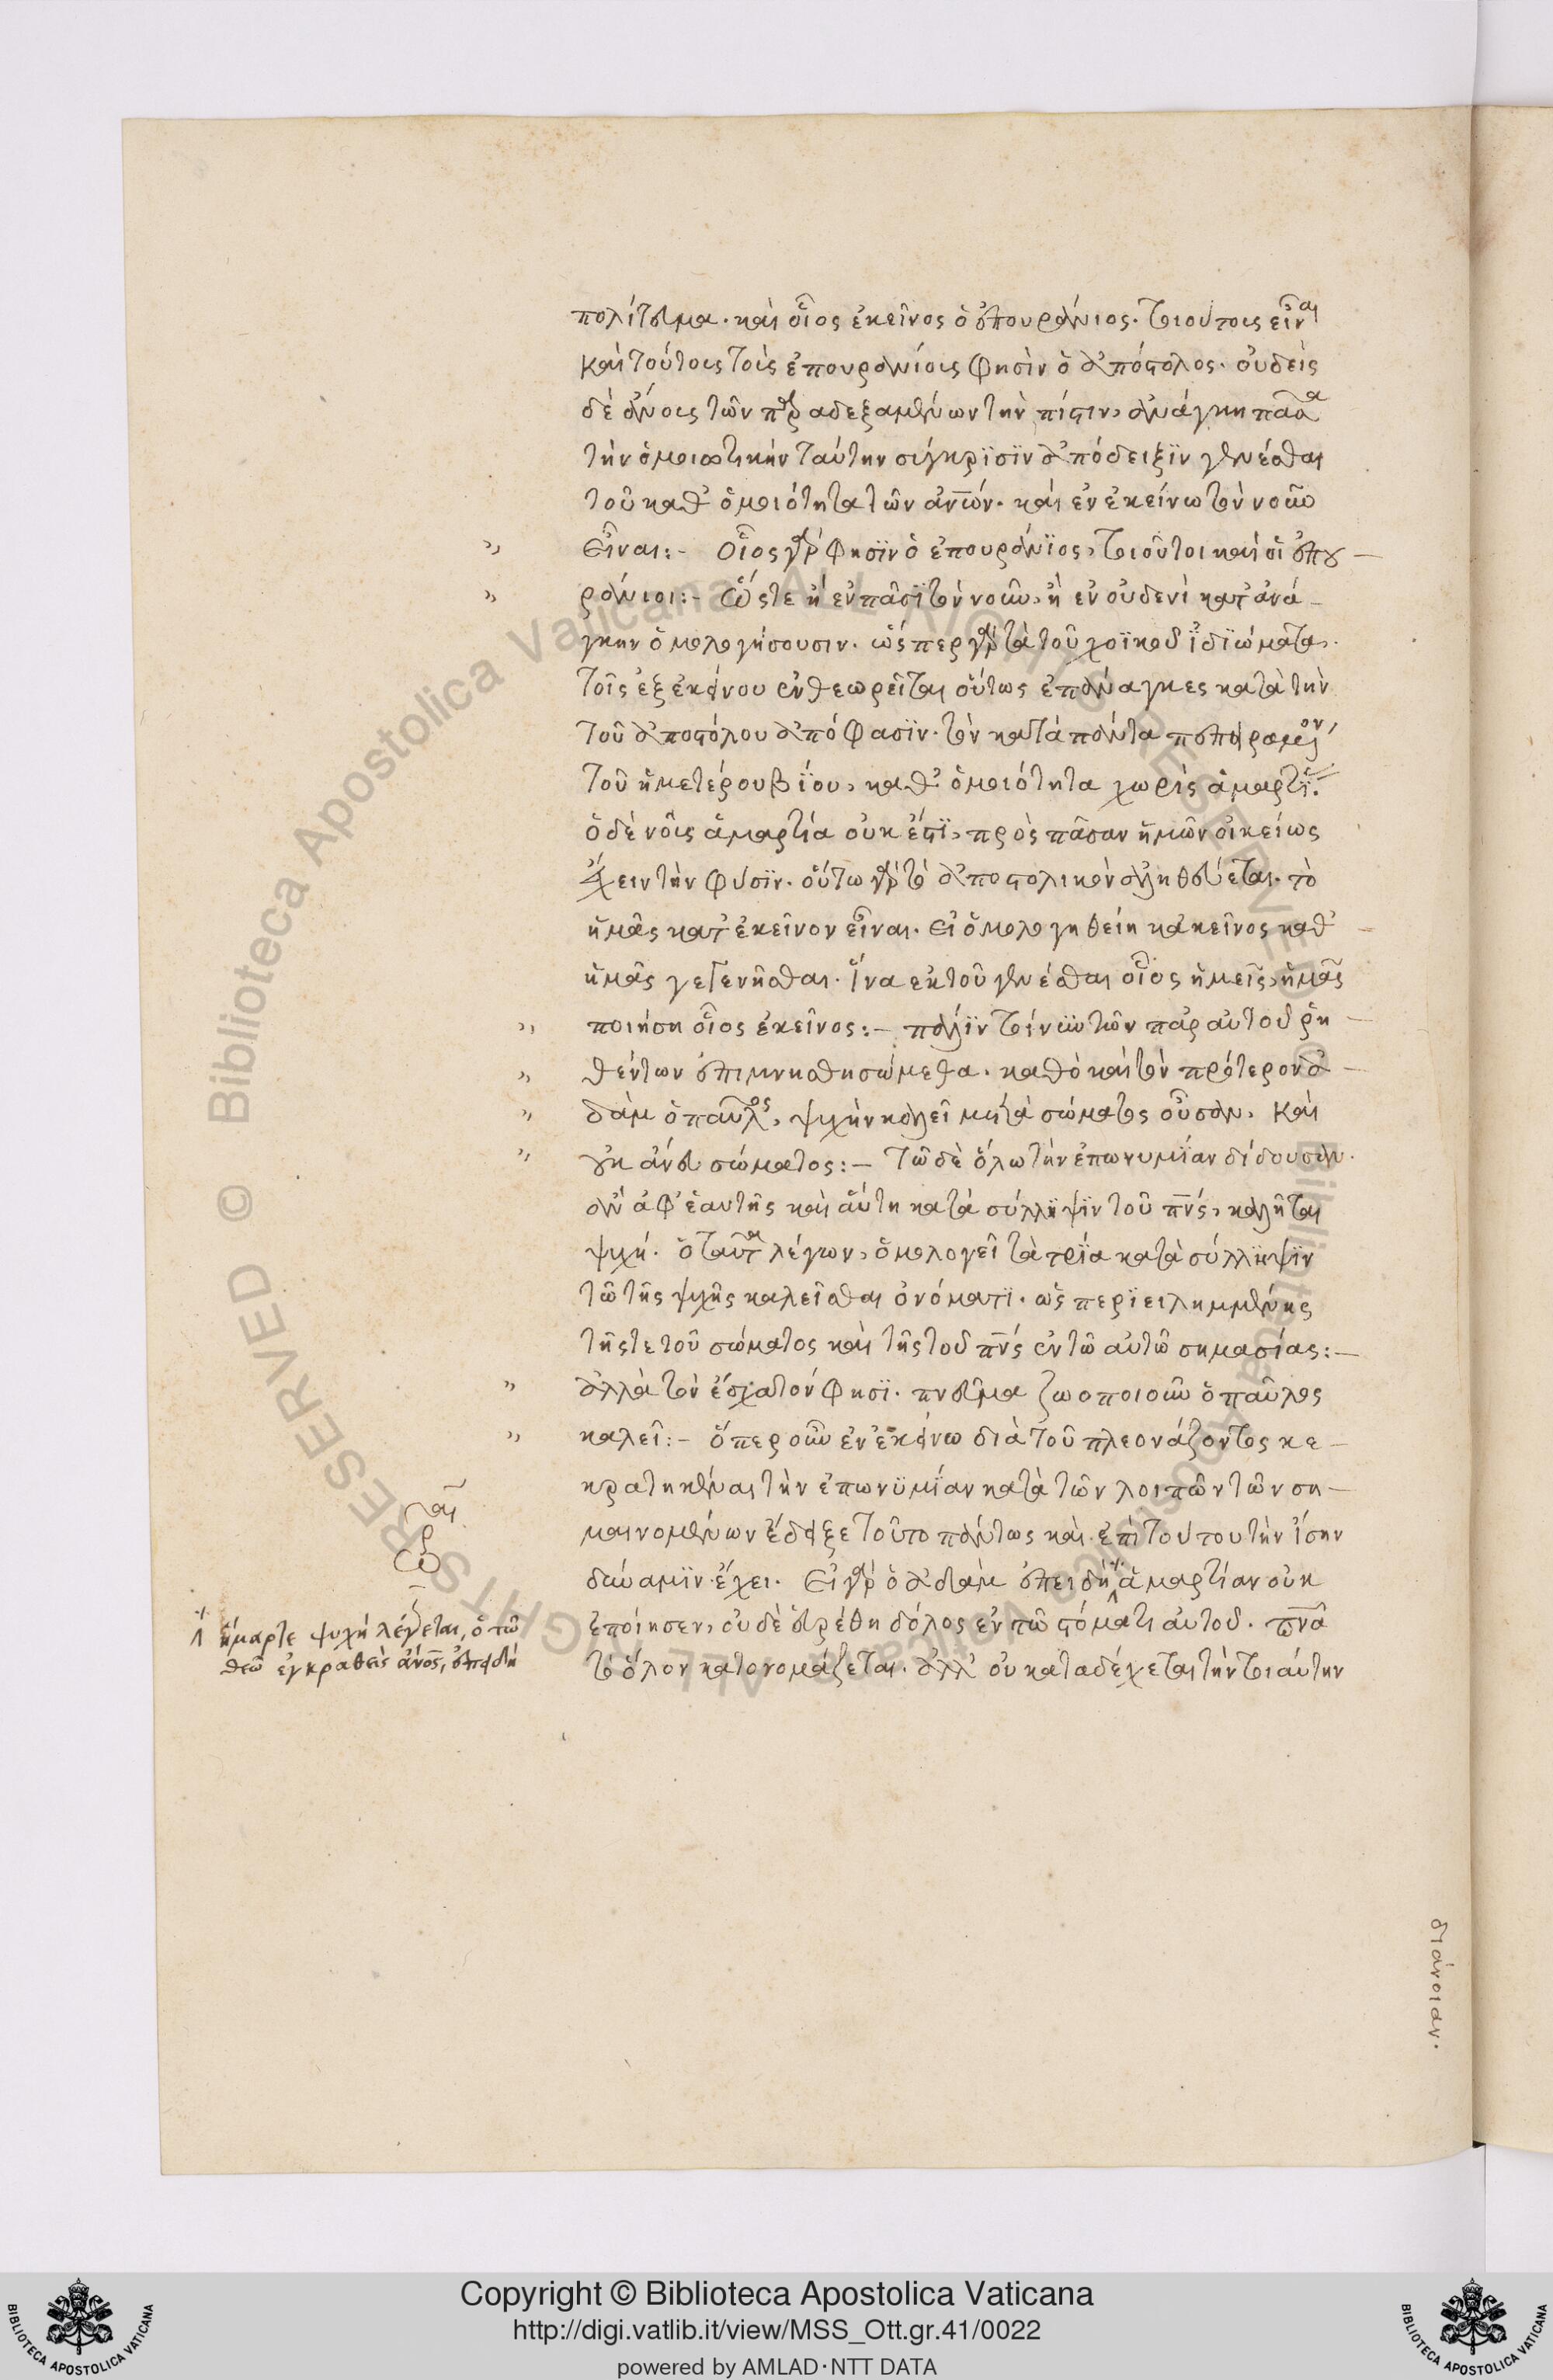 πολίτευμα. καὶ οἷος ἐκεῖνος ὁ ἐπουράνιος. τοιούτοις εἶναι
καὶ τούτοις τοῖς ἐπουρανίοις φησὶν ὁ ἀπόστολος. οὐδεὶς
δὲ ἄνοις τῶν παραδεξαμένων τὴν πίστιν, ἀνάγκη πᾶσα
τὴν ὁμοιωτικὴν ταύτην σύγκρϊσϊν ἀπόδειξϊν γενέσθαι
τοῦ καθ' ὁμοιότητα τῶν ἀνων. καὶ ἐν ἐκείνω τὸν νοῦν
εἶναι:- Οἷος γάρ φησϊν ὁ ἐπουράνϊος, τοιοῦτοι καὶ οἱ ἐπου-
ράνιοι:- Ὥστε ἢ ἐν πᾶσϊ τὸν νοῦν, ἢ ἐν οὐδενὶ κατ' ἀνά-
γκην ὁμολογήσουσιν. ὥσπερ γὰρ τὰ τοῦ χοϊκοῦ ἰδϊώματα.
τοῖς ἐξ ἐκείνου ἐνθεωρεῖται οὕτως ἐπάναγκες κατὰ τὴν
τοῦ ἀποστόλου ἀπόφασϊν. τὸν κατὰ πάντα πεπειραμένον
τοῦ ἡμετέρου βίου, καθ' ὁμοιότητα χωρὶς ἁμαρτί.
ὁ δὲ νοῦς ἁμαρτία οὐκ ἔστϊ, πρὸς πᾶσαν ἡμῶν οἰκείως
ἔχειν τὴν φύσϊν. οὕτω γὰρ τὸ ἀποστολικὸν ἀληθεύεται. τὸ
ἡμᾶς κατ' ἐκεῖνον εἶναι. εἰ ὁμολογηθείη κἀκεῖνος καθ'
ἡμᾶς γεγενῆσθαι. ἵνα ἐκ τοῦ γενέσθαι οἷος ἡμεῖς, ἡμᾶς
ποιήση οἷος ἐκεῖνος:- πάλϊν τοίνυν τῶν παρ αὐτοῦ ῥη-
θέντων ἐπιμνησθησώμεθα. καθὸ καὶ τὸν πρότερον ἀ-
δὰμ ὁ παῦλος, ψυχὴν καλεῖ μετὰ σώματος οὖσαν, καὶ
οὐκ ἄνευ σώματος:- τῶ δὲ ὅλω τὴν ἐπωνυμΐαν δίδουσαν.
ἀφ' ἑαυτῆς καὶ αὕτη κατὰ σύλληψϊν τοῦ πνς, καλῆται
ψυχή. ὁ ταῦτα λέγων, ὁμολογεῖ τὰ τρία κατὰ σύλληψϊν
τῶ τῆς ψυχῆς καλεῖσθαι ὀνόματϊ. ὡς περϊειλημμένης
τῆς τε τοῦ σώματος καὶ τῆς τοῦ πνς ἐν τῶ αὐτῶ σημασίας:-
ἀλλὰ τὸν ἔσχατόν φησϊ. πνεῦμα ζωοποιοῦν ὁ παῦλος
καλεῖ:- ὅπερ οὖν ἐν ἐκείνω διὰ τοῦ πλεονάζοντος κε-
κρατηκέναι τὴν ἐπωνϋμΐαν κατὰ τῶν λοιπῶν τῶν ση-
μαινομένων ἔδειξε τοῦτο πάντως καὶ ἐπὶ τούτου τὴν ἴσην
δύναμϊν ἔχει. Εἰ γὰρ ὁ ἀδὰμ ἐπειδὴ ἁμαρτίαν οὐκ
ἐποίησεν, οὐδὲ εὑρέθη δόλος ἐν τῶ στόματι αὐτοῦ. πνα
τὸ ὅλον κατονομάζεται. ἀλλ' οὐ καταδέχεται τὴν τοιαύτην
ἥμαρτε ψυχὴ λέγεται, ὁ τῶ
θεῶ ἐγκραθεὶς ἀνος, ἐπειδὴ
διάνοιαν.
© Biblioteca Apostolica Vaticana ALL RIGHTS RESERVED
Copyright © Biblioteca Apostolica Vaticana
http://digi.vatlib.it/view/MSS_Ott.gr.41/0022
powered by AMLAD·NTT DATA
BIBLIOTECA APOSTOLICA VATICANA
BIBLIOTECA APOSTOLICA VATICANA